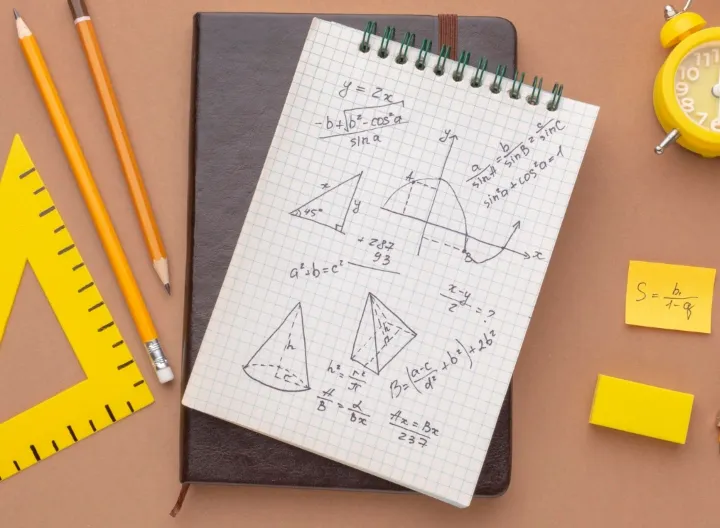 y = 2x
-b+√b²-cos²a
sin a
a/sinA = b/sinB = c/sinC
sin²a+cos²a=1
y
A
x
y
45°
B
x
+287
93
a²+b=c²
x-y/2 = ?
h
r
h
h² = r²/π
B=(a-c/d² + b²)+2b²
A/B = d/Bx
Ax=Bx
237
S = b₁/1-q
10
9
8
7
6